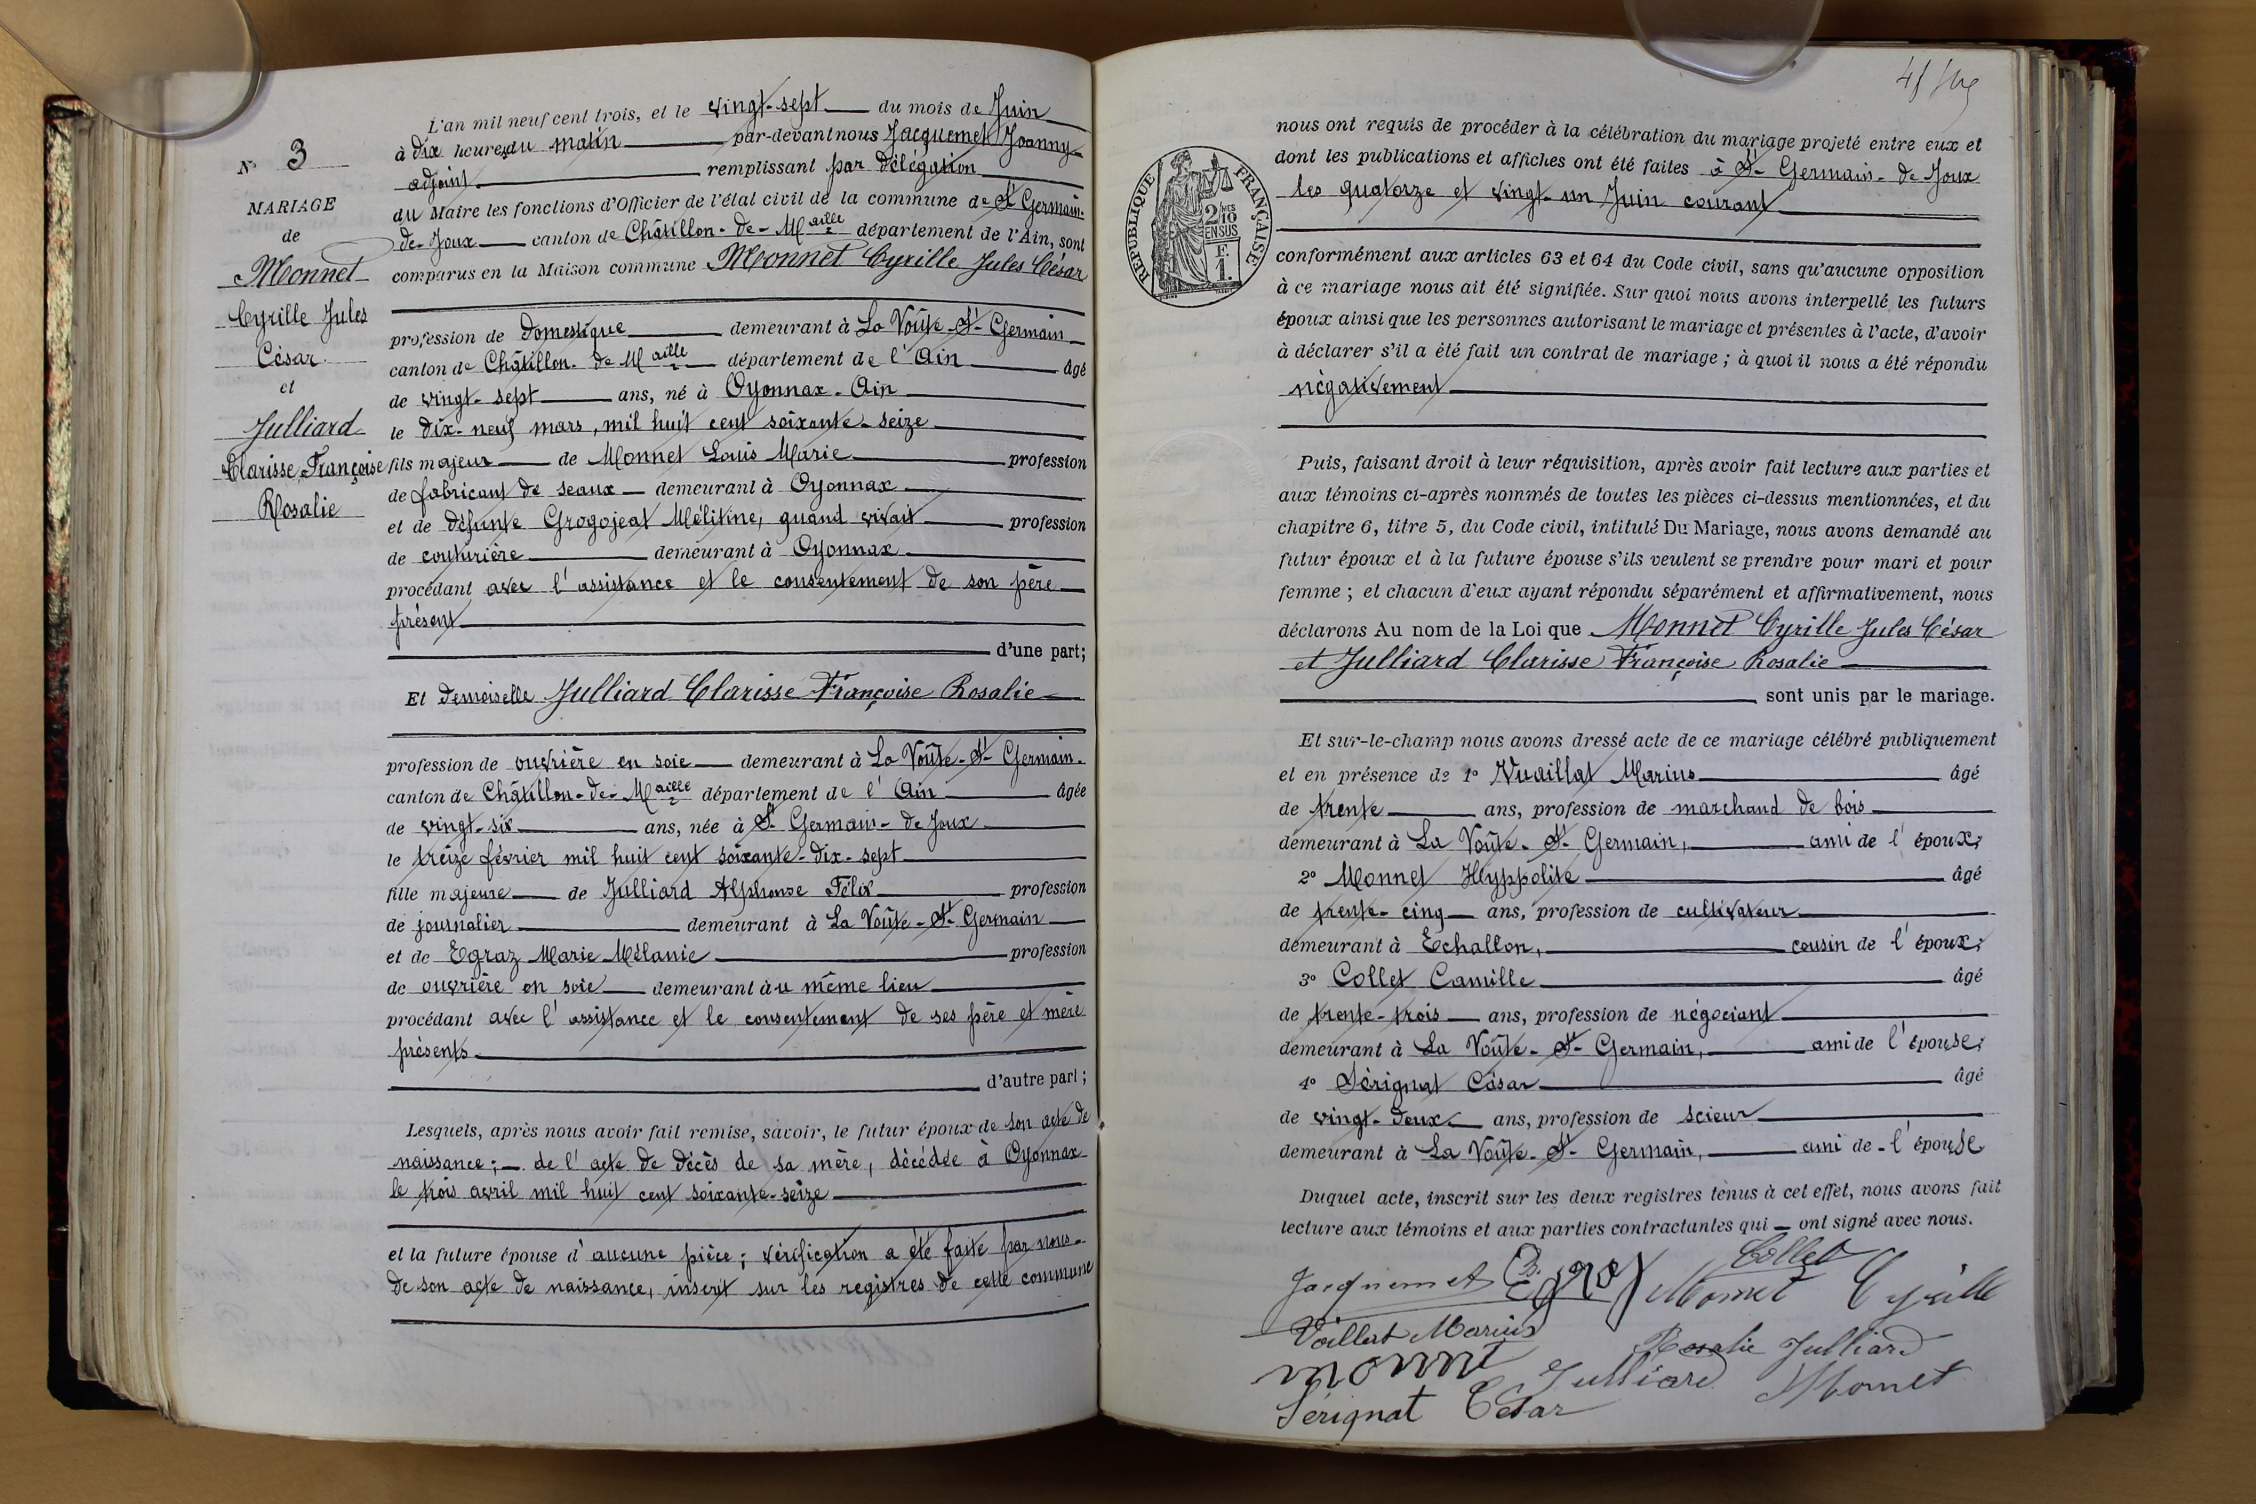 N° 3
MARIAGE
de
Monnet
Cyrille Jules
César
et
Julliard
Clarisse Françoise
Rosalie
L'an mil neuf cent trois, et le vingt-sept du mois de Juin
à dix heures du matin par-devant nous Jacquemet Joanny
adjoint remplissant par délégation
du Maire les fonctions d'Officier de l'état civil de la commune de St Germain-
de-Joux canton de Châtillon-de-Maille département de l'Ain, sont
comparus en la Maison commune Monnet Cyrille Jules César
profession de domestique demeurant à La Voûte-St-Germain
canton de Châtillon-de-Maille département de l'Ain âgé
de vingt-sept ans, né à Oyonnax-Ain
le dix-neuf mars, mil huit cent soixante-seize
fils majeur de Monnet Louis Marie profession
de fabricant de seaux demeurant à Oyonnax
et de défunte Grogojeat Mélitine, quand vivait profession
de couturière demeurant à Oyonnax
procédant avec l'assistance et le consentement de son père
présent
d'une part;
Et demoiselle Julliard Clarisse Françoise Rosalie
profession de ouvrière en soie demeurant à La Voûte-St-Germain.
canton de Châtillon-de-Maille département de l'Ain âgée
de vingt-six ans, née à St Germain-de Joux
le treize février mil huit cent soixante-dix-sept
fille majeure de Julliard Alphonse Félix profession
de journalier demeurant à La Voûte-St-Germain
et de Egraz Marie Mélanie profession
de ouvrière en soie demeurant au même lieu
procédant avec l'assistance et le consentement de ses père et mère
présents
d'autre part;
Lesquels, après nous avoir fait remise, savoir, le futur époux de son acte de
naissance; - de l'acte de décès de sa mère, décédée à Oyonnax
le trois avril mil huit cent soixante-seize
et la future épouse d'aucune pièce; vérification a été faite par nous
de son acte de naissance, inscrit sur les registres de cette commune
RÉPUBLIQUE FRANÇAISE
2/10
EN SUS
F.
1.
nous ont requis de procéder à la célébration du mariage projeté entre eux et
dont les publications et affiches ont été faites à St-Germain-de Joux
les quatorze et vingt-un Juin courant
conformément aux articles 63 et 64 du Code civil, sans qu'aucune opposition
à ce mariage nous ait été signifiée. Sur quoi nous avons interpellé les futurs
époux ainsi que les personnes autorisant le mariage et présentes à l'acte, d'avoir
à déclarer s'il a été fait un contrat de mariage; à quoi il nous a été répondu
négativement
Puis, faisant droit à leur réquisition, après avoir fait lecture aux parties et
aux témoins ci-après nommés de toutes les pièces ci-dessus mentionnées, et du
chapitre 6, titre 5, du Code civil, intitulé Du Mariage, nous avons demandé au
futur époux et à la future épouse s'ils veulent se prendre pour mari et pour
femme; et chacun d'eux ayant répondu séparément et affirmativement, nous
déclarons Au nom de la Loi que Monnet Cyrille Jules César
et Julliard Clarisse Françoise Rosalie
sont unis par le mariage.
Et sur-le-champ nous avons dressé acte de ce mariage célébré publiquement
et en présence de 1° Vuaillat Marius âgé
de trente ans, profession de marchand de bois
demeurant à La Voûte-St-Germain, ami de l'époux;
2° Monnet Hyppolite âgé
de trente-cinq ans, profession de cultivateur
demeurant à Echallon, cousin de l'époux;
3° Collet Camille âgé
de trente-trois ans, profession de négociant
demeurant à La Voûte-St-Germain, ami de l'épouse;
4° Sérignat César âgé
de vingt-deux ans, profession de scieur
demeurant à La Voûte-St-Germain, ami de-l'épouse
Duquel acte, inscrit sur les deux registres tenus à cet effet, nous avons fait
lecture aux témoins et aux parties contractantes qui ont signé avec nous.
Collet
Jacquemet Monnet Cyrille
Vaillat Marius Rosalie Julliard
monnet Julliard Monnet
Sérignat César